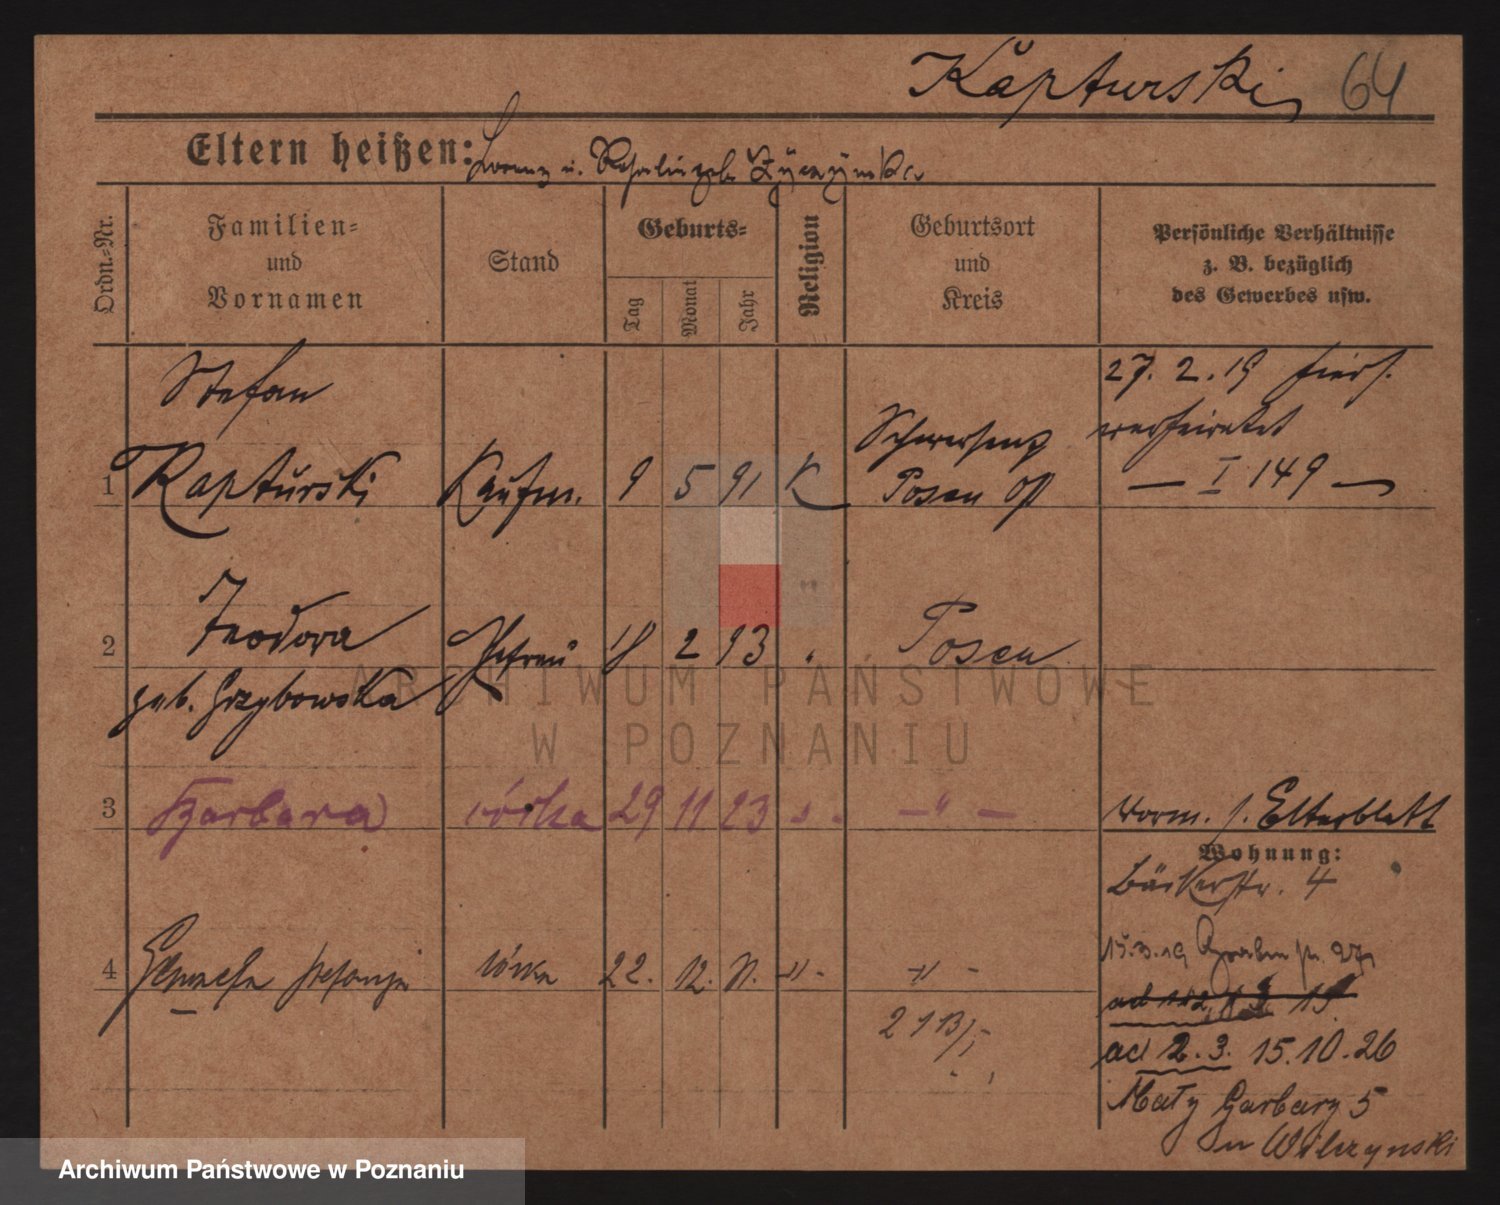 Kapturski 64
Eltern heißen: Lorenz u. Rosalie geb.
Ordn.-Nr.
Familien-
und
Vornamen
Stand
Geburts-
Tag
Monat
Jahr
Religion
Geburtsort
und
Kreis
Persönliche Verhältnisse
z. B. bezüglich
des Gewerbes usw.
Stefan
27. 2. 19 hiers.
verheiratet
1 Kapturski Kaufm. 9 5 91 K Schwersenz
Posen Ost
— I 149 —
Teodora
2 Ehefrau 18 2 93 " Posen
geb. Grzybowska
3 Barbara córka 29 11 23 " — " —
vorm. s. Elternblatt
Wohnung:
Bäckerstr. 4
4 Stefanja córka 22. 12. " - " -
15.3.19 27
ad 1.2. 19
ad 2. 3. 15. 10. 26
Małe Garbary 5
Wilczynski
ARCHIWUM PAŃSTWOWE
W POZNANIU
Archiwum Państwowe w Poznaniu